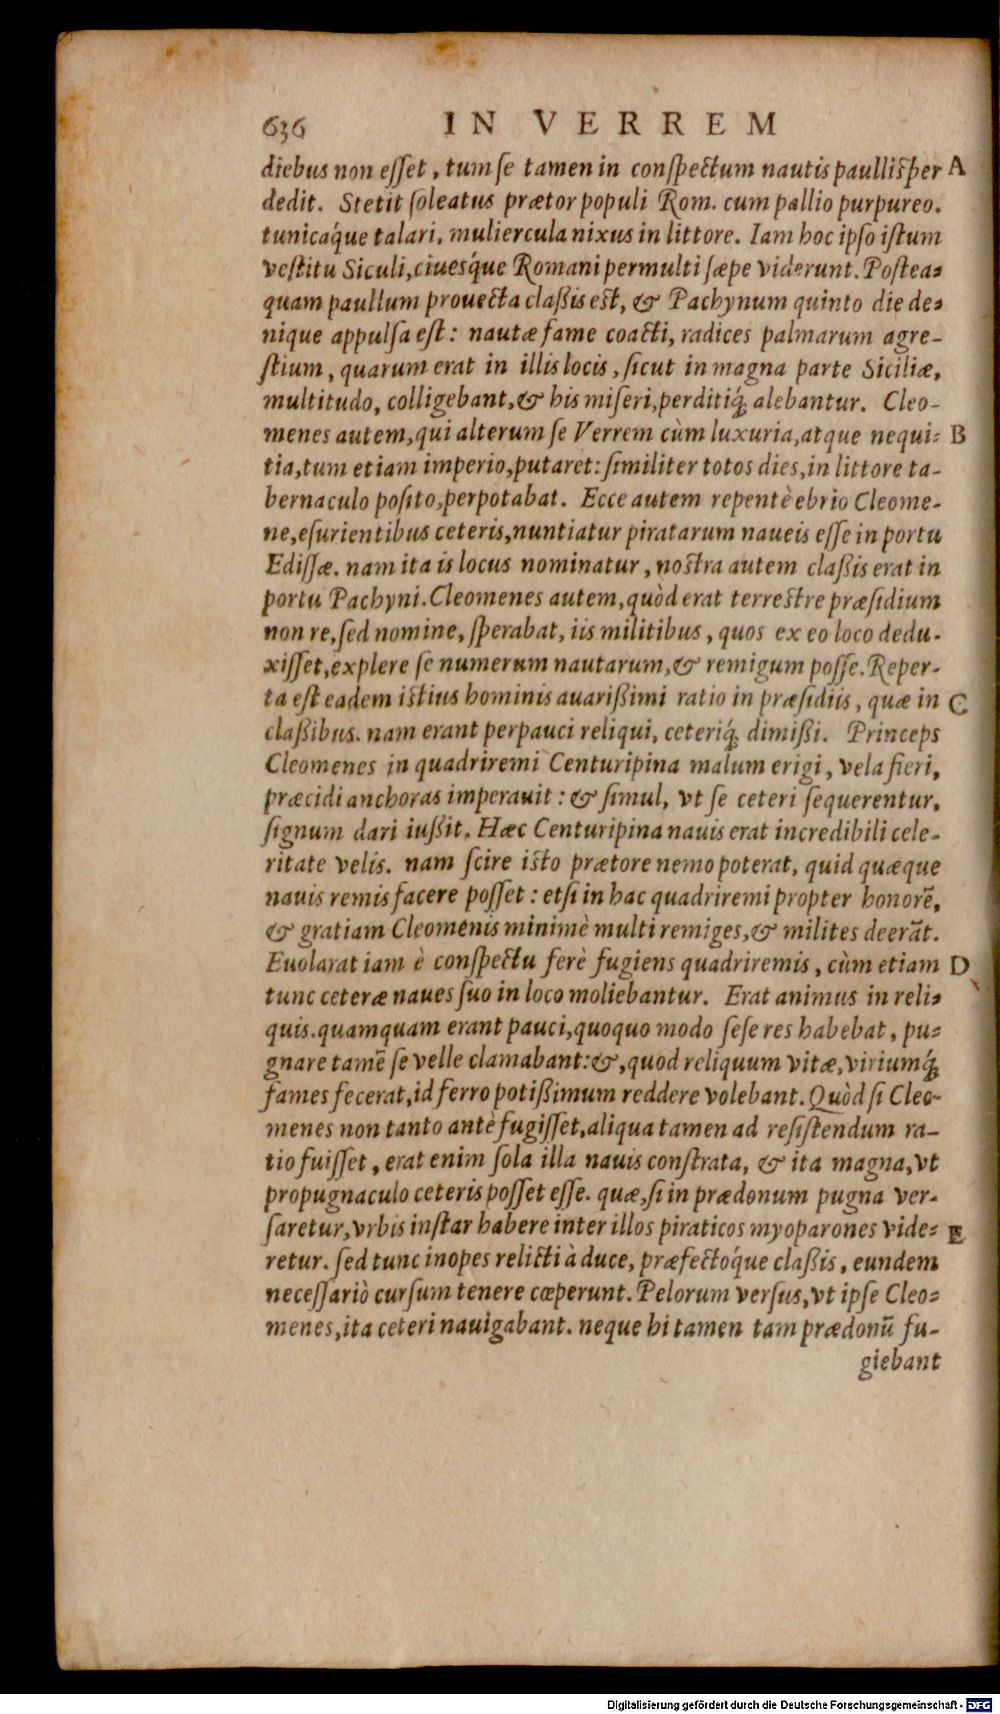 636 IN VERREM
diebus non eſſet, tum ſe tamen in conſpectum nautis paulliſper A
dedit. Stetit ſoleatus prætor populi Rom. cum pallio purpureo.
tunicáque talari, muliercula nixus in littore. Iam hoc ipſo iſtum
veſtitu Siculi, ciuesq́ue Romani permulti ſæpe viderunt. Poſtea-
quam paullum prouecta claßis eſt, & Pachynum quinto die de-
nique appulſa eſt: nautæ fame coacti, radices palmarum agre-
ſtium, quarum erat in illis locis, ſicut in magna parte Siciliæ,
multitudo, colligebant, & his miſeri, perditiq́; alebantur. Cleo-
menes autem, qui alterum ſe Verrem cùm luxuria, atque nequi- B
tia, tum etiam imperio, putaret: ſimiliter totos dies, in littore ta-
bernaculo poſito, perpotabat. Ecce autem repentè ebrio Cleome-
ne, eſurientibus ceteris, nuntiatur piratarum naueis eſſe in portu
Ediſſæ. nam ita is locus nominatur, noſtra autem claßis erat in
portu Pachyni. Cleomenes autem, quòd erat terreſtre præſidium
non re, ſed nomine, ſperabat, iis militibus, quos ex eo loco dedu-
xiſſet, explere ſe numerum nautarum, & remigum poſſe. Reper-
ta eſt eadem iſtius hominis auarißimi ratio in præſidiis, quæ in C
claßibus. nam erant perpauci reliqui, ceteriq́; dimißi. Princeps
Cleomenes in quadriremi Centuripina malum erigi, vela fieri,
præcidi anchoras imperauit: & ſimul, vt ſe ceteri ſequerentur,
ſignum dari iußit. Hæc Centuripina nauis erat incredibili cele-
ritate velis. nam ſcire iſto prætore nemo poterat, quid quæque
nauis remis facere poſſet: etſi in hac quadriremi propter honorē,
& gratiam Cleomenis minimè multi remiges, & milites deerāt.
Euolarat iam è conſpectu ferè fugiens quadriremis, cùm etiam D
tunc ceteræ naues ſuo in loco moliebantur. Erat animus in reli-
quis. quamquam erant pauci, quoquo modo ſeſe res habebat, pu-
gnare tamē ſe velle clamabant: &, quod reliquum vitæ, viriumq́;
fames fecerat, id ferro potißimum reddere volebant. Quòd ſi Cleo-
menes non tanto antè fugiſſet, aliqua tamen ad reſiſtendum ra-
tio fuiſſet, erat enim ſola illa nauis conſtrata, & ita magna, vt
propugnaculo ceteris poſſet eſſe. quæ, ſi in prædonum pugna ver-
ſaretur, vrbis inſtar habere inter illos piraticos myoparones vide- E
retur. ſed tunc inopes relicti à duce, præfectóque claßis, eundem
neceſſariò curſum tenere cœperunt. Pelorum verſus, vt ipſe Cleo-
menes, ita ceteri nauigabant. neque hi tamen tam prædonū fu-
giebant
Digitalisierung gefördert durch die Deutsche Forschungsgemeinschaft - DFG